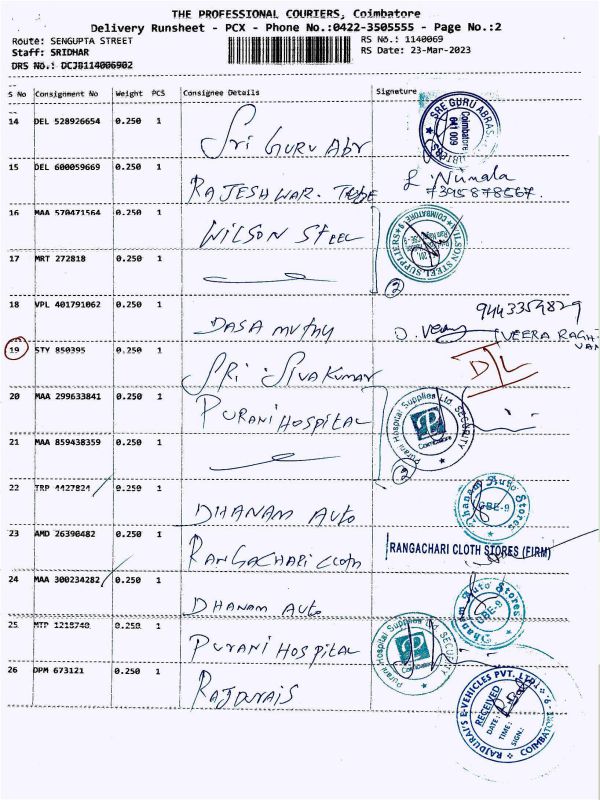 THE PROFESSIONAL COURIERS, Coimbatore
Delivery Runsheet - PCX - Phone No.:0422-3505555 - Page No.:2
Route: SENGUPTA STREET
RS No.: 1140069
Staff: SRIDHAR
RS Date: 23-Mar-2023
DRS No.: DCJB114006902
S No Consignment No Weight PCS Consignee Details Signature
14 DEL 528926654 0.250 1 Sri GURU Abr
SRE GURU ABRAS
Coimbatore
641 009
15 DEL 600059669 0.250 1 RAJESHWAR. TUBE
7395878567.
16 MAA 570471564 0.250 1 WILSON STEEL
WILSON STEEL SUPPLIERS
COIMBATORE-9
17 MRT 272818 0.250 1
2
18 VPL 401791062 0.250 1 DASA MUTHY
9443354829
VEERA RAGHAVAN
19 STY 850395 0.250 1 SRI SIVAKUMAR
D/L
20 MAA 299633841 0.250 1 PURANI HOSPITAL
Purani Hospital Supplies Ltd. SECURITY
Coimbatore
21 MAA 859438359 0.250 1
2
22 TRP 4427824 0.250 1 DHANAM AUTO
Dhanam Auto Stores
CBE-9
23 AMD 26390482 0.250 1 RANGACHARI CLOTH
RANGACHARI CLOTH STORES (FIRM)
24 MAA 300234282 0.250 1 DHANAM AUTO
Dhanam Auto Stores
CBE-9
25 MTP 1218740 0.250 1 PURANI HOSPITAL
Purani Hospital Supplies Ltd SECURITY
26 DPM 673121 0.250 1 RAJDURAIS
RAJDURAI'S E-VEHICLES PVT. LTD.
COIMBATORE - 9.
RECEIVED
DATE:
TIME:
SIGN: